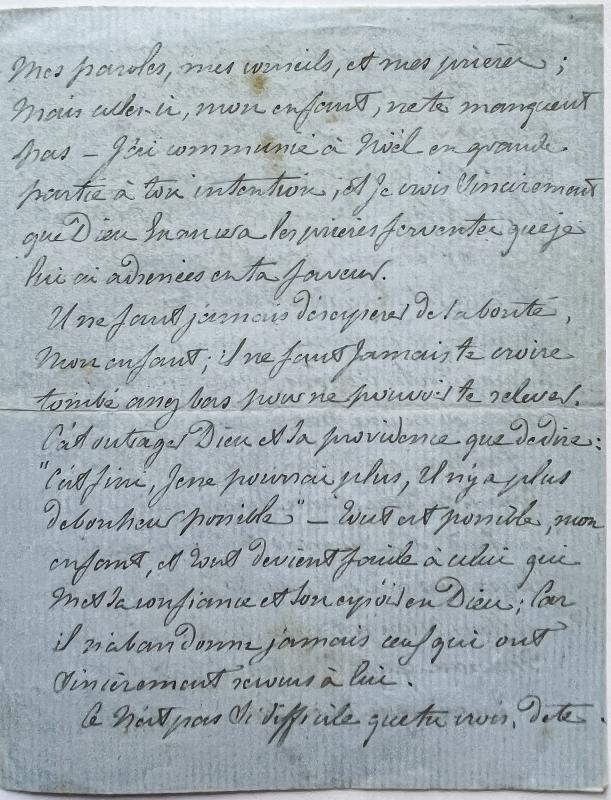 Mes paroles, mes conseils, et mes prières ;
Mais celles-ci, mon enfant, ne te manquent
pas – J'ai communié à Noël en grande
partie à ton intention, et Je crois Sincèrement
que Dieu Exaucera les prières ferventes que je
lui ai adressées en ta faveur.
Il ne faut jamais désespérer de sa bonté,
Mon enfant ; il ne faut Jamais te croire
tombé assez bas pour ne pouvoir te relever.
C'est outrager Dieu et Sa providence que de dire :
"C'est fini, Je ne pourrai plus, Il n'y a plus
de bonheur possible" – Tout est possible, mon
enfant, et tout devient facile à celui qui
Met Sa confiance et Son espoir en Dieu ; Car
il n'abandonne jamais ceux qui ont
Sincèrement recours à lui.
Ce N'est pas Si difficile que tu crois, de te